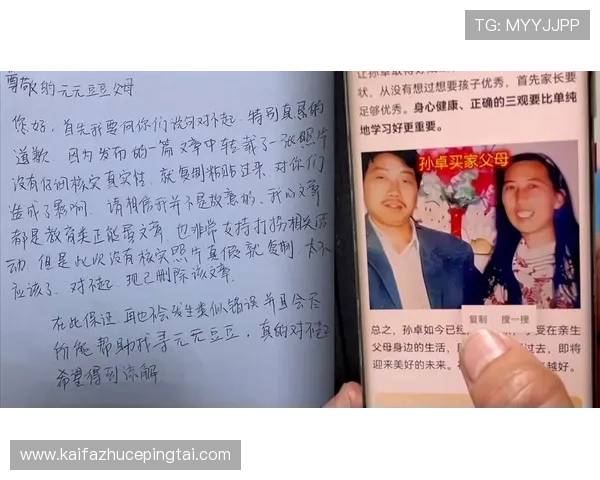 TG: MYYJJPP
尊敬的元元豆豆父母
您好,首先我要向你们说句对不起,特别真恳的
道歉,因为发布的一篇文章中转载了一张照片
没有仔细核实真实性,就复制粘贴过来,对你们
造成了影响,请相信我并不是故意的,我的文章
都是教育类正能量文章,也非常支持打拐相关活
动,但是此次没有核实照片真假就复制,太不
应该了,对不起,现已删除该文章.
在此保证,再也不会发生类似错误并且会尽
所能帮助找寻元元豆豆,真的对不起
希望得到谅解
状,从没有想过想要孩子优秀,首先家长要
足够优秀。身心健康、正确的三观要比单纯
地学习好更重要。
孙卓买家父母
复制 搜一搜
总之,孙卓如今已经 受在亲生
父母身边的生活, 过去,即将
迎来美好的未来。 越好。
www.kaifazhucepingtai.com